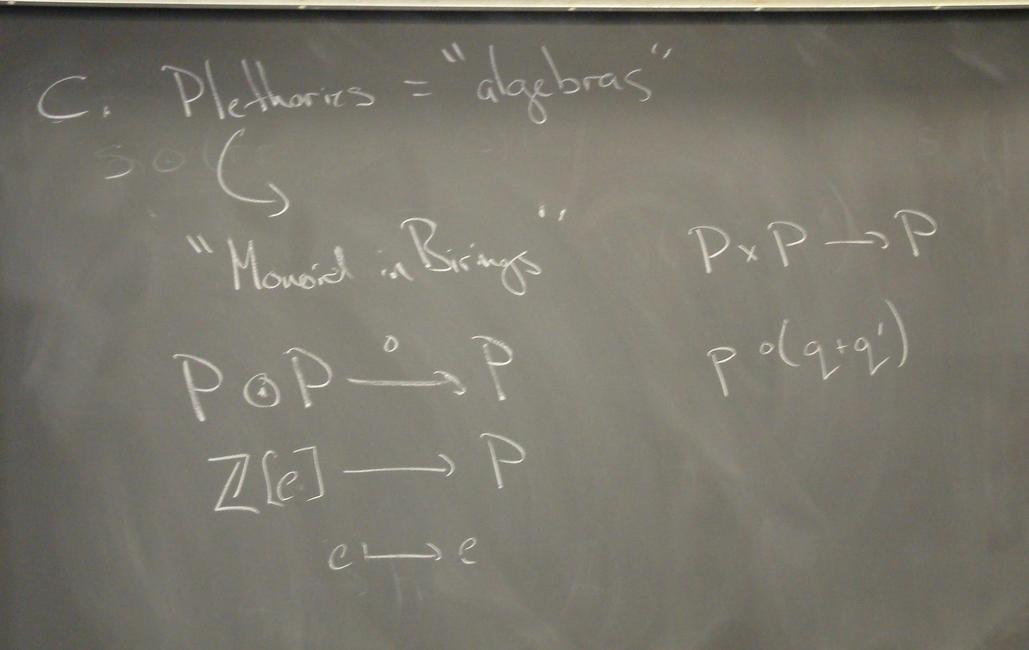 C. Plethories = "algebras"
"Monoid in Birings"
P × P → P
P ⊙ P —∘→ P
p ∘ (q + q')
Z[e] → P
e ↦ e